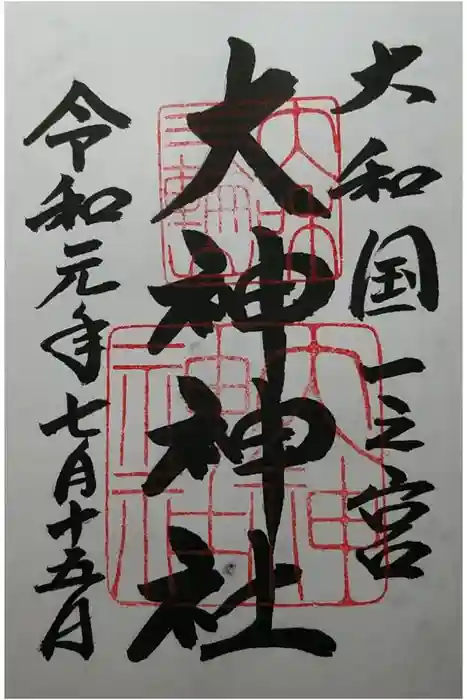 大和国一之宮
大神神社
令和元年七月十五日